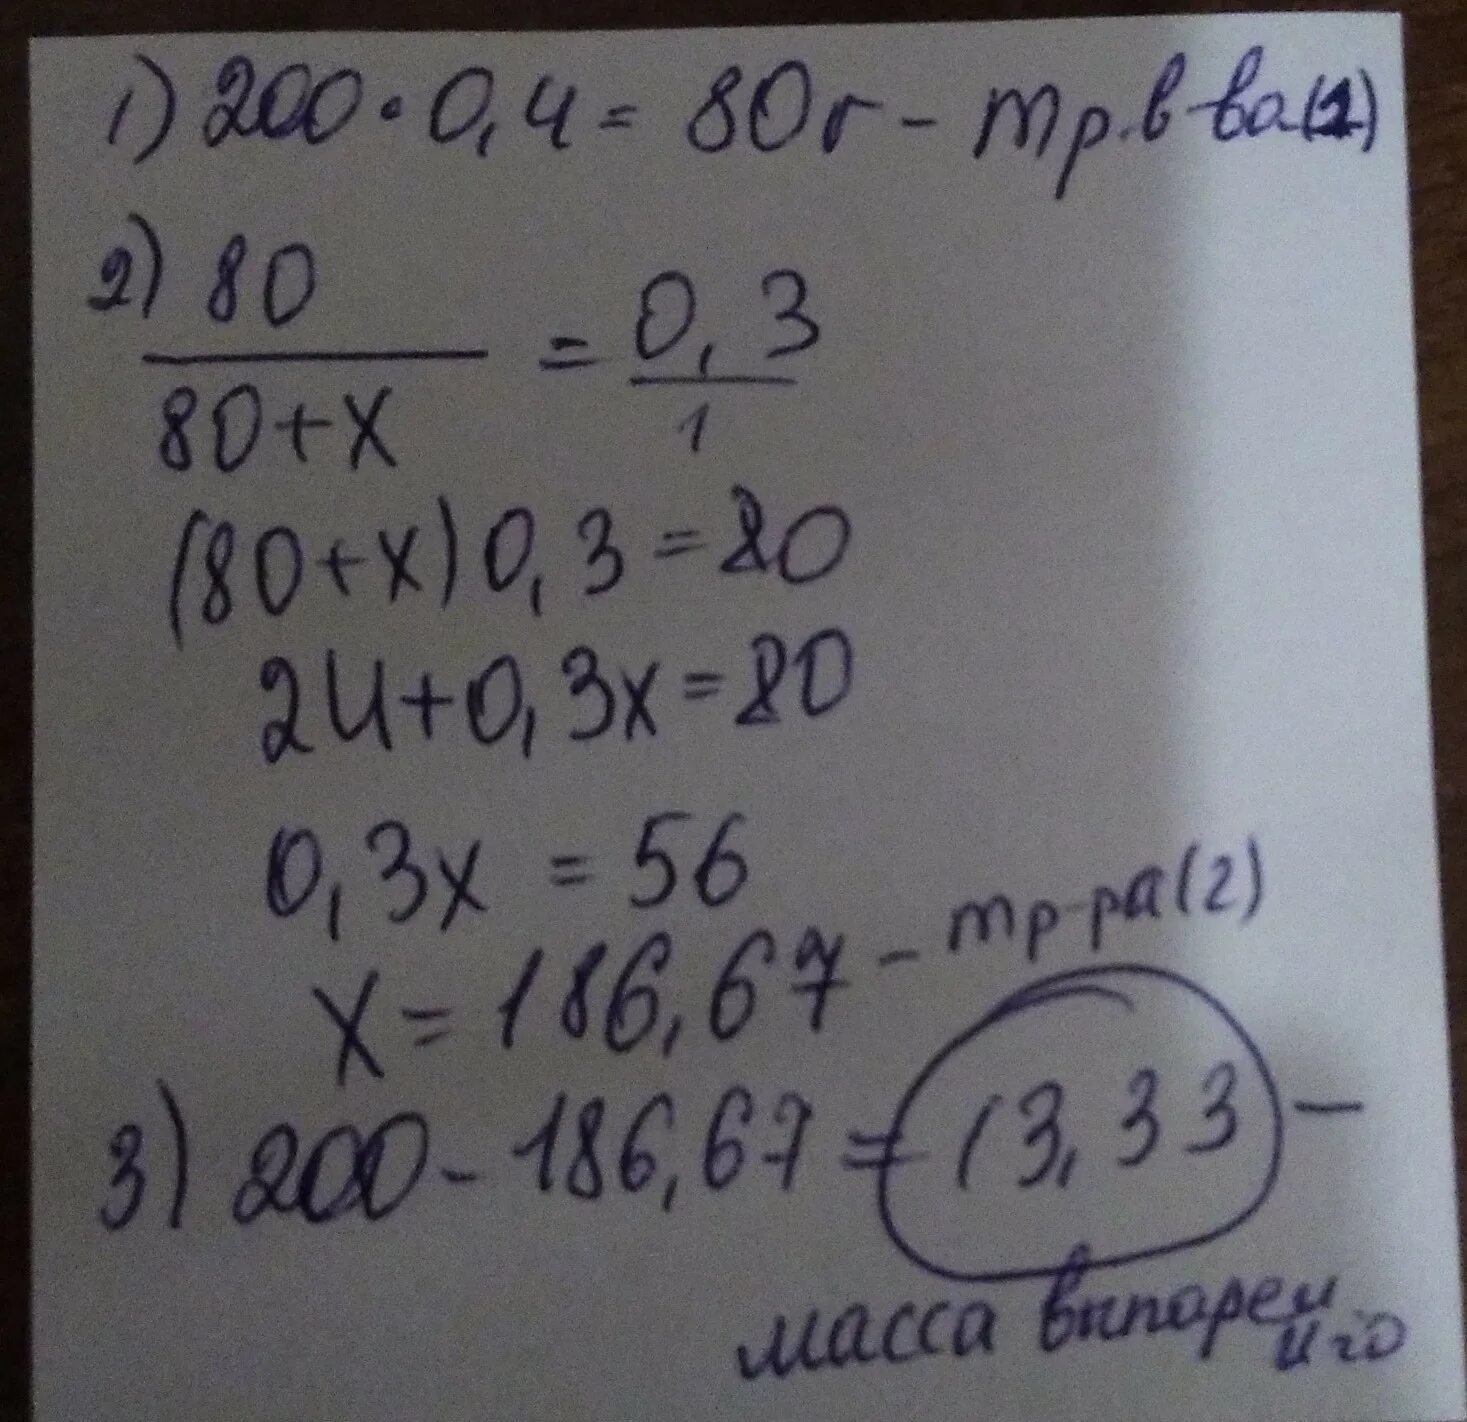 1) 200 · 0,4 = 80г - mр.в-ва(1)
2) 80/80+x = 0,3/1
(80+x)0,3=80
24+0,3x=80
0,3x = 56
x = 186,67 - mр-ра(2)
3) 200 - 186,67 = 13,33 -
масса выпаренного